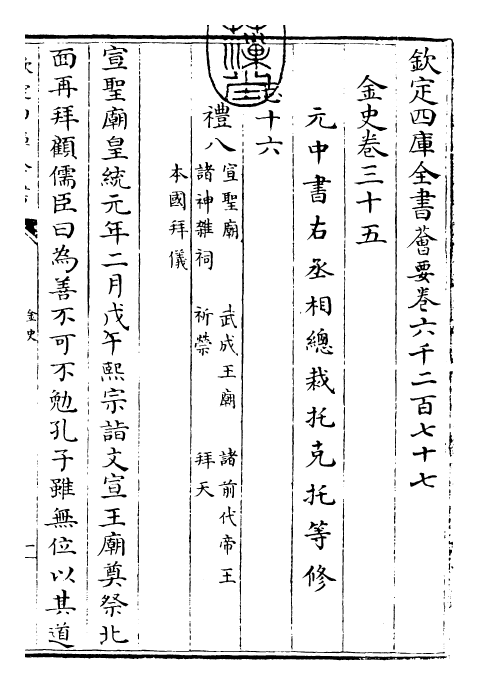 欽定四庫全書薈要卷六千二百七十七
金史卷三十五
元中書右丞相總裁托克托等修
志十六
禮八
宣聖廟 武成王廟 諸前代帝王
諸神雜祠 祈禜 拜天
本國拜儀
宣聖廟皇統元年二月戊午熙宗詣文宣王廟奠祭北
面再拜顧儒臣曰為善不可不勉孔子雖無位以其道
金史